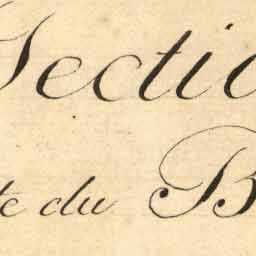 Sectio
te du B